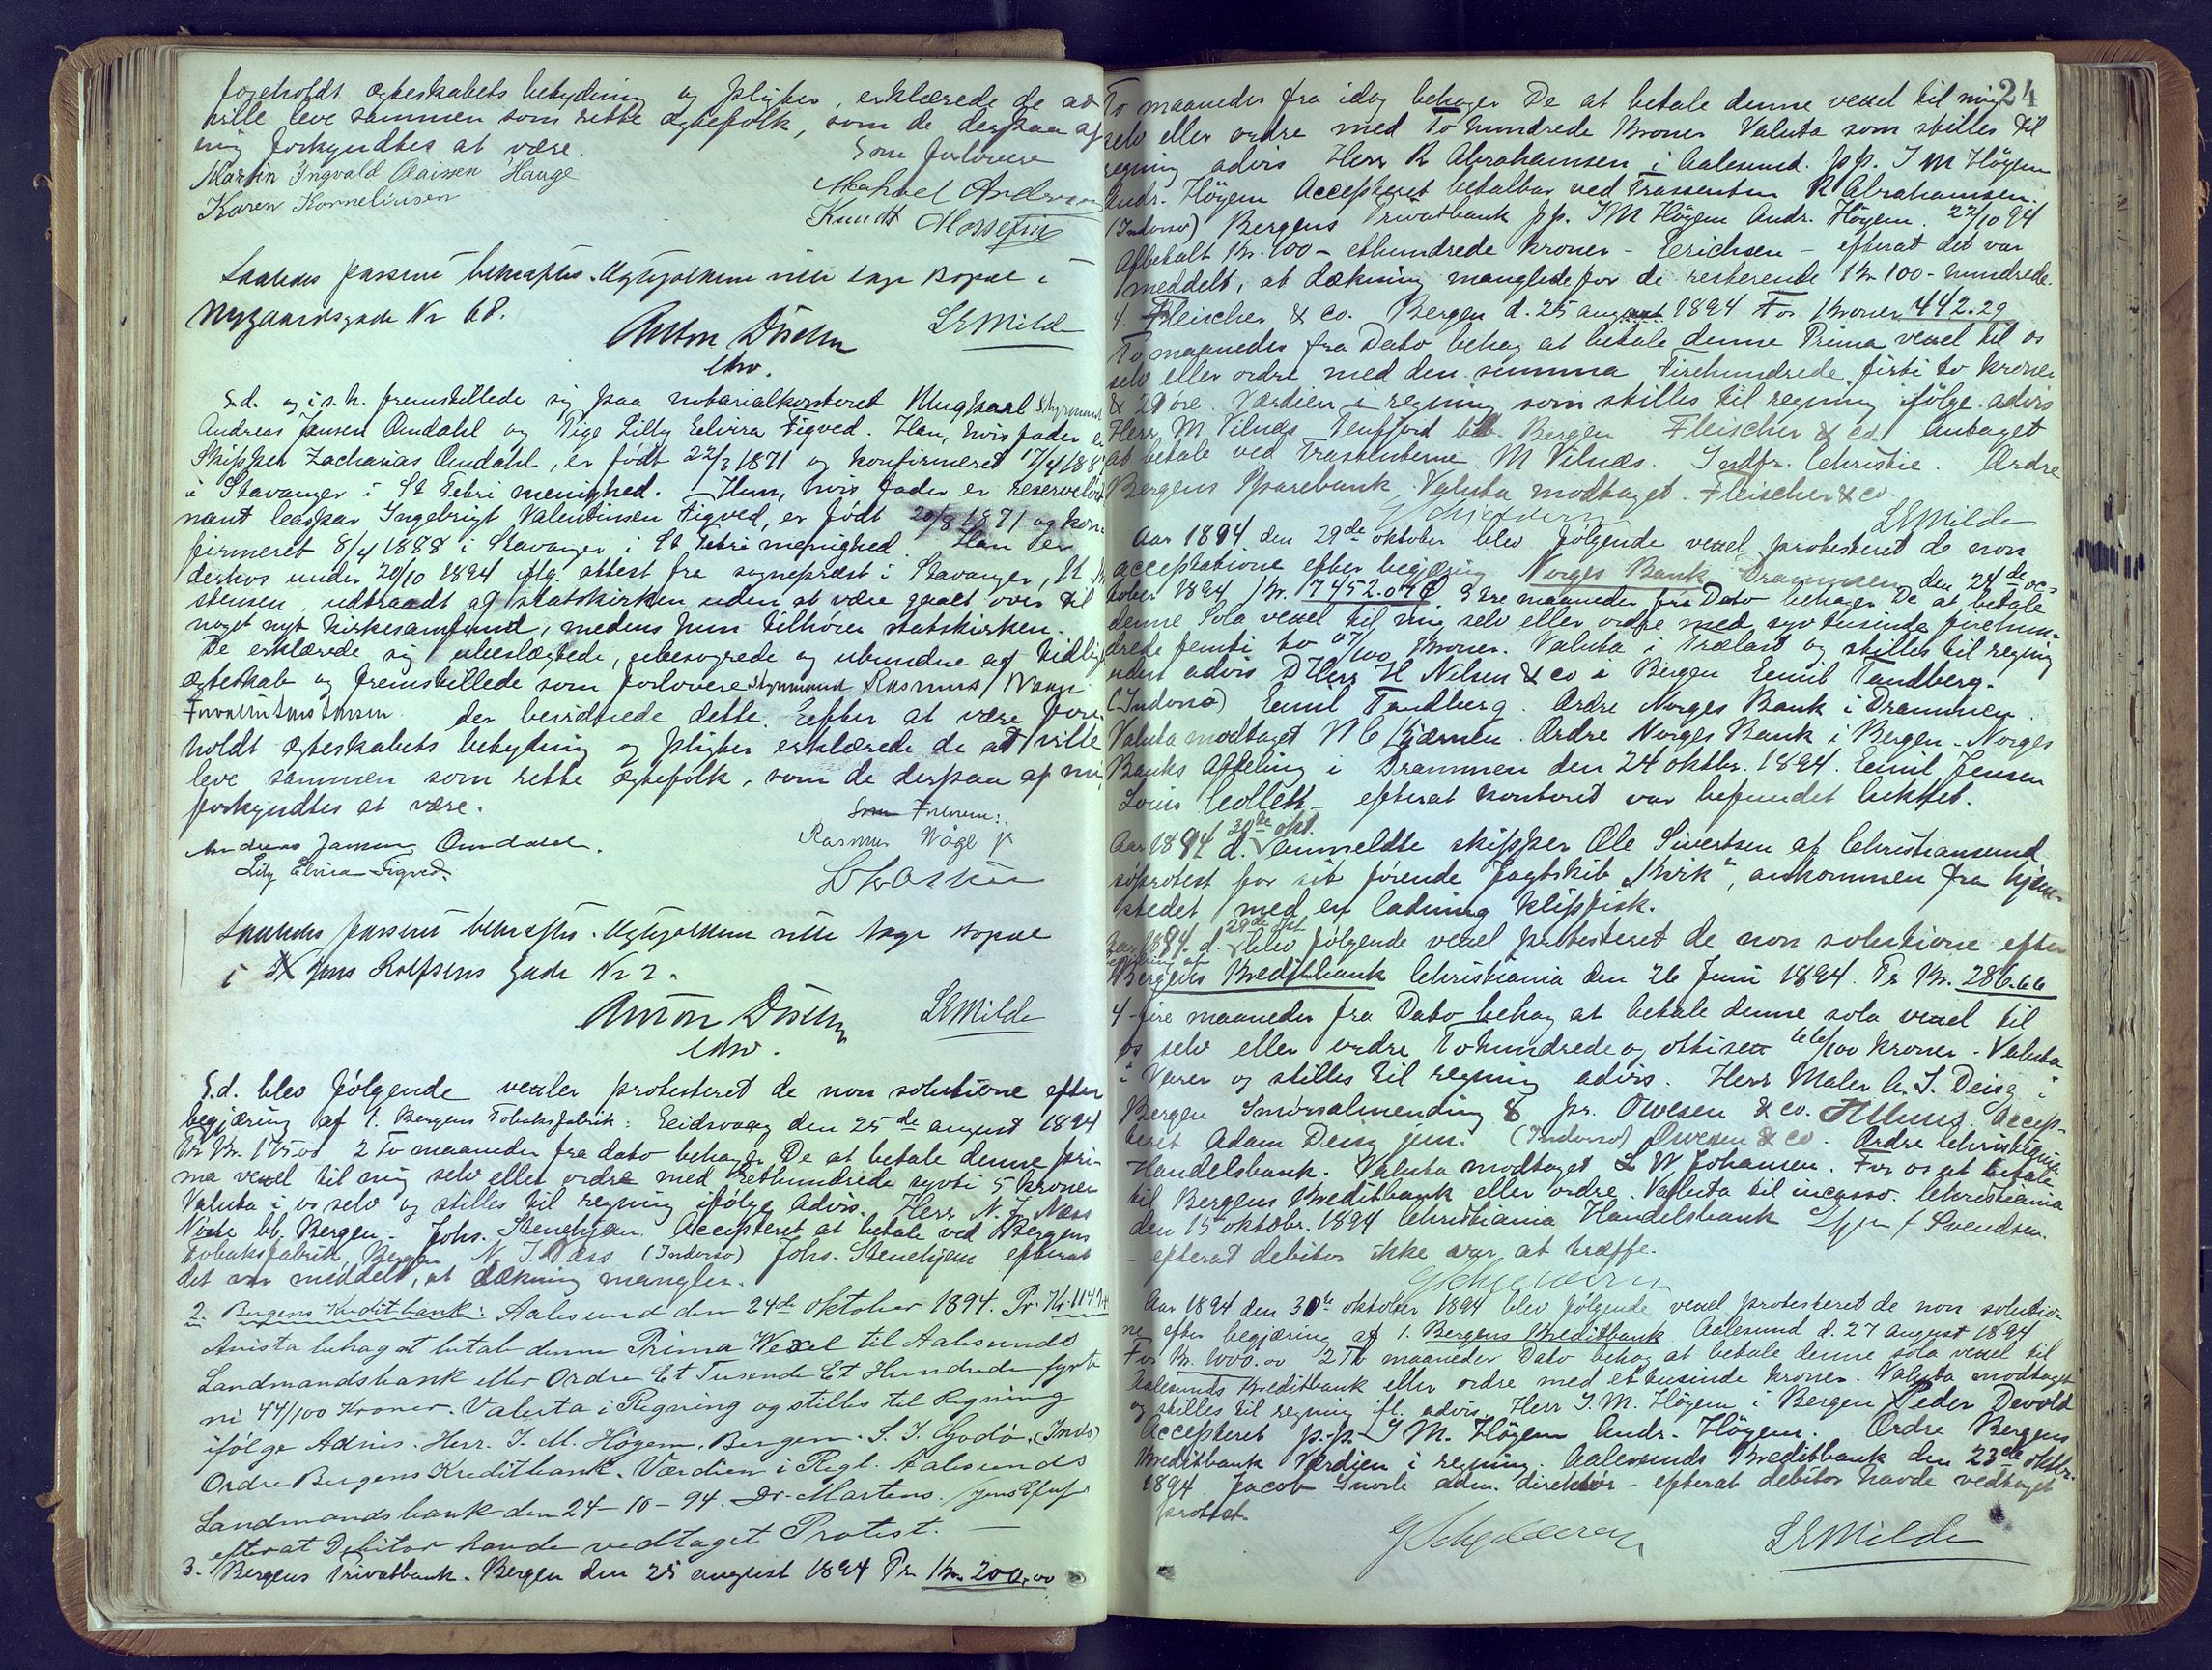 foreholdt ægteskabets betydning og pligter, erklærede de at
ville leve sammen som rette ægtefolk, som de derpaa af
mig forkyndtes at være.
Som forlovere
Martin Ingvald Claissen Hauge
Karen Korneliussen
Michael Andersen
Knutt
Saaledes passeret bekræftes. Ægtefolkene ville tage Bopæl i
Nygaardsgade Nr 68.
Anton
LEMilde
S.d. og i s. h. fremstillede sig paa notarialkontoret Ungkarl Styrmand
Andreas Jansen Omdahl og Pige Lilly Elvira Figved. Han, hvis fader er
Skipper Zacharias Omdahl, er født 22/3 1871 og konfirmeret
i Stavanger i St Petri menighed. Hun, hvis fader er reserveløit-
nant Caspar Ingebrigt Valentinsen Figved, er født 20/8 1871 og kon-
firmeret 8/4 1888 i Stavanger i St Petri menighed. Han er
derhos under 20/10 1894 iflg. attest fra sogneprest i Stavanger,
udtraadt af statskirken uden at være gaaet over til
noget nyt kirkesamfund, medens hun tilhører statskirken.
De erklærede sig ubeslægtede, ubesvogrede og ubundne af tidlige
ægteskab og fremstillede som forlovere Styrmand Rasmus Waage
der bevidnede dette. Efter at være fore-
holdt ægteskabets betydning og pligter erklærede de at ville
leve sammen som rette ægtefolk, som de derpaa af mig
forkyndtes at være.
Som Forlovere:
Andreas Jansen Omdahl.
Rasmus Wåge jr
Lily Elvira Figved.
Saaledes passeret bekræftes. Ægtefolkene ville tage Bopæl
i Jens Rolfsens Gade Nr 2.
Anton
LEMilde
S.d. blev følgende vexler protesteret de non solutione efter
begjæring af 1. Bergens Tobaksfabrik: Eidsvaag den 25de august 1894
Pr Kr. 175.00 2 To maaneder fra dato behager De at betale denne pri-
ma vexel til mig selv eller ordre med Ethundrede sytti 5 kroner
Valuta i os selv og stilles til regning ifølge Advis. Herr N. J. Næss
bb. Bergen. Johs. Stenehjem. Accepteret at betale ved Bergens
Tobaksfabrik, Bergen N. J. Næss (Indorso) Johs. Stenehjem efterat
det var meddelt, at dækning mangler.
2. Bergens Kreditbank: Aalesund den 24de Oktober 1894. Pr. Kr. 1149.44
Avista behag at betale denne Prima Wexel til Aalesunds
Landmandsbank eller Ordre Et Tusende Et Hundrede fyrti
ni 44/100 Kroner. Valuta i Regning og stilles til Regning
ifølge Advis. Herr. I. M. Høgem. Bergen. S. J. Godø. (Inds)
Ordre Bergens Kreditbank. Værdien i Regl. Aalesunds
Landmandsbank den 24-10-94. Dr. Martens.
efterat Debitor havde vedtaget Protest.
3. Bergens Privatbank. Bergen den 25 august 1894 Pr Kr. 200,00
24
To maaneder fra idag behager De at betale denne vexel til mig
selv eller ordre med To hundrede Kroner. Valuta som stilles til
regning advis Herr R Abrahamsen i Aalesund. pp. I M Høgem
Andr. Høgem Accepteret betalbar ved Trassenten R Abrahamsen.
(Indorso) Bergens Privatbank pp. I M Høgem Andr. Høgem. 22/10 94
Afbetalt Kr. 100 - ethundrede kroner - Erichsen - efterat det var
meddelt, at dækning manglede for de resterende Kr 100 - hundrede.
4. Fleischer & Co. Bergen d. 25 august 1894 For Kroner 442.29
To maaneder fra Dato behag at betale denne Prima vexel til os
selv eller ordre med den summa Firehundrede firti to kroner
& 29 øre. Værdien i regning som stilles til regning ifølge advis
Herr M Vilnæs Tenfjord bb. Bergen Fleischer & co. Antaget
at betale ved Trassenterne M Vilnæs. Indfr. Christie. Ordre
Bergens Sparebank. Valuta modtaget. Fleischer & co.
LEMilde
Aar 1894 den 29de oktober blev følgende vexel protesteret de non
acceptatione efter begjæring Norges Bank Drammen den 24de oc-
tober 1894 Kr. 7452.07 3 tre maaneder fra Dato behager De at betale
denne Sola vexel til mig selv eller ordre med syv tusinde firehun-
drede femti to 07/100 Kroner. Valuta i Trælast og stilles til regning
uden advis DHerr H Nilsen & co i Bergen Emil Tandberg.
(Indorso) Emil Tandberg. Ordre Norges Bank i Drammen.
Valuta modtaget N C Kjærnen. Ordre Norges Bank i Bergen. Norges
Banks Afdeling i Drammen den 24 oktbr. 1894. Emil Jensen
Louis Collett - efterat kontoret var befundet lukket.
Aar 1894 d. 30de okt. anmeldte skipper Ole Sivertsen af Christiansund
søprotest for sit førende Jagtskib „Kirk“, ankommen fra hjem-
stedet med en ladning klipfisk.
Aar 1894. d. 29de okt blev følgende vexel protesteret de non solutione efter
begjæring af
Bergens Kreditbank Christiania den 26 Juni 1894. Pr Kr. 286.66
4 - fire maaneder fra Dato behag at betale denne sola vexel til
os selv eller ordre Tohundrede og ottisex 66/100 kroner. Valuta
i Varer og stilles til regning advis. Herr Maler A. J. Deisz i
Bergen Smørsalmending 8 pr. Owesen & co. Accep-
teret Adam Deisz jun. (Indorso) Owesen & co. Ordre Christiania
Handelsbank. Valuta modtaget L W Johansen. For os at betale
til Bergens Kreditbank eller ordre. Valuta til incasso. Christiania
den 15 oktobr. 1894 Christiania Handelsbank Svendsen.
- efterat debitor ikke var at træffe.
Aar 1894 den 30te oktober 1894 blev følgende vexel protesteret de non solutio-
ne efter begjæring af 1. Bergens Kreditbank Aalesund d. 27 August 1894
For Kr. 1000.00 2 To maaneder Dato behag at betale denne sola vexel til
Aalesunds Kreditbank eller ordre med et tusinde kroner. Valuta modtaget
og stilles til regning ifl. advis. Herr I. M. Høgem i Bergen Peder Devold
Accepteret p.p. I M. Høgem Andr. Høgem. Ordre Bergens
Kreditbank Værdien i regning. Aalesunds Kreditbank den 23de oktbr.
1894 Jacob adm. direktør - efterat debitor havde vedtaget
protest.
LEMilde